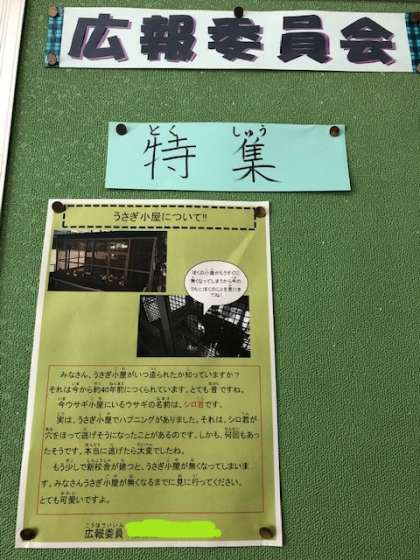 広報委員会
特集
とくしゅう
うさぎ小屋について!!
ぼくの小屋がもうすぐで
無くなってしまうから今の
うちにぼくのことを見にきてね!
みなさん、うさぎ小屋がいつ造られたか知っていますか?
それは今から約40年前につくられています。とても昔ですね。
今ウサギ小屋にいるウサギの名前は、シロ君です。
実は、うさぎ小屋でハプニングがありました。それは、シロ君が
穴をほって逃げそうになったことがあるのです。しかも、何回もあっ
たそうです。本当に逃げたら大変でしたね。
もう少しで新校舎が建つと、うさぎ小屋が無くなってしまいま
す。みなさんうさぎ小屋が無くなるまでに見に行ってください。
とても可愛いですよ。
こうほういいん
広報委員